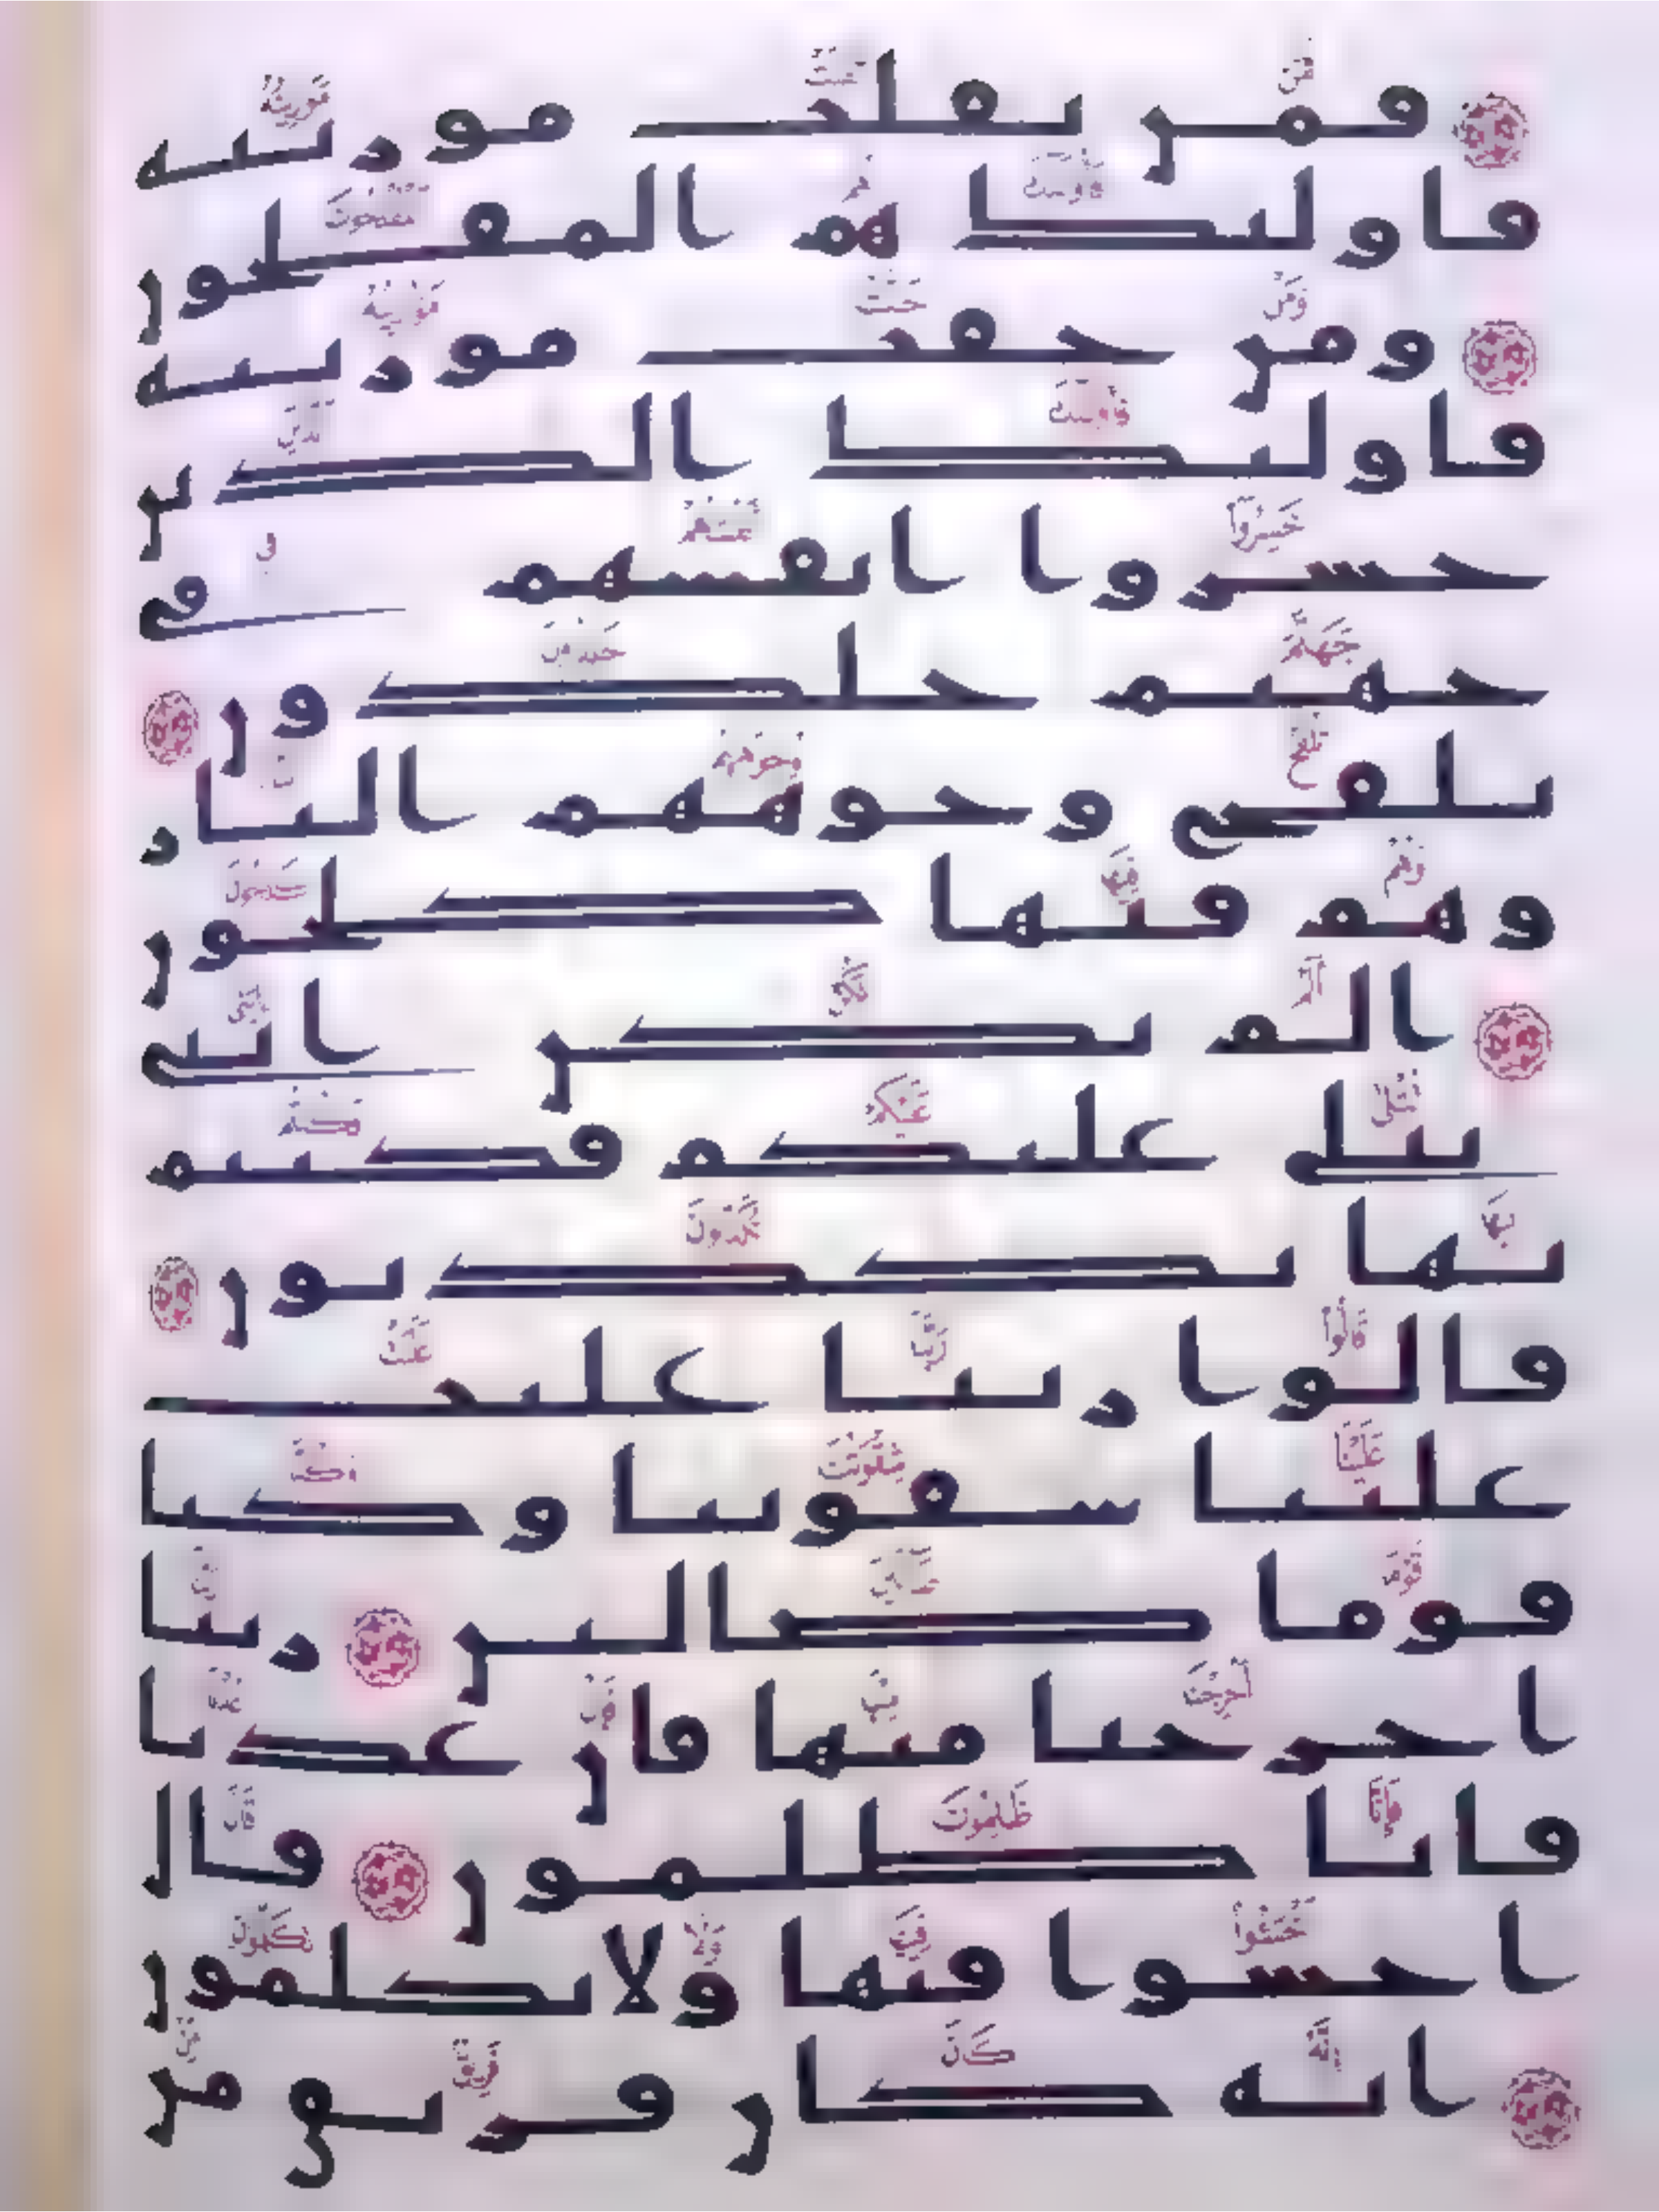 فمن ثقلت موزينه
فاوليك هم المفلحون
ومن خفت موزينه
فاوليك الذين
خسروا انفسهم في
جهنم خلدون
تلفح وجوههم النار
وهم فيها كلحون
الم تكن ايتي
تتلى عليكم فكنتم
بها تكذبون
قالوا ربنا غلبت
علينا شقوتنا وكنا
قوما ضالين ربنا
اخرجنا منها فان عدنا
فانا ظلمون قال
اخسوا فيها ولا تكلمون
انه كان فريق من